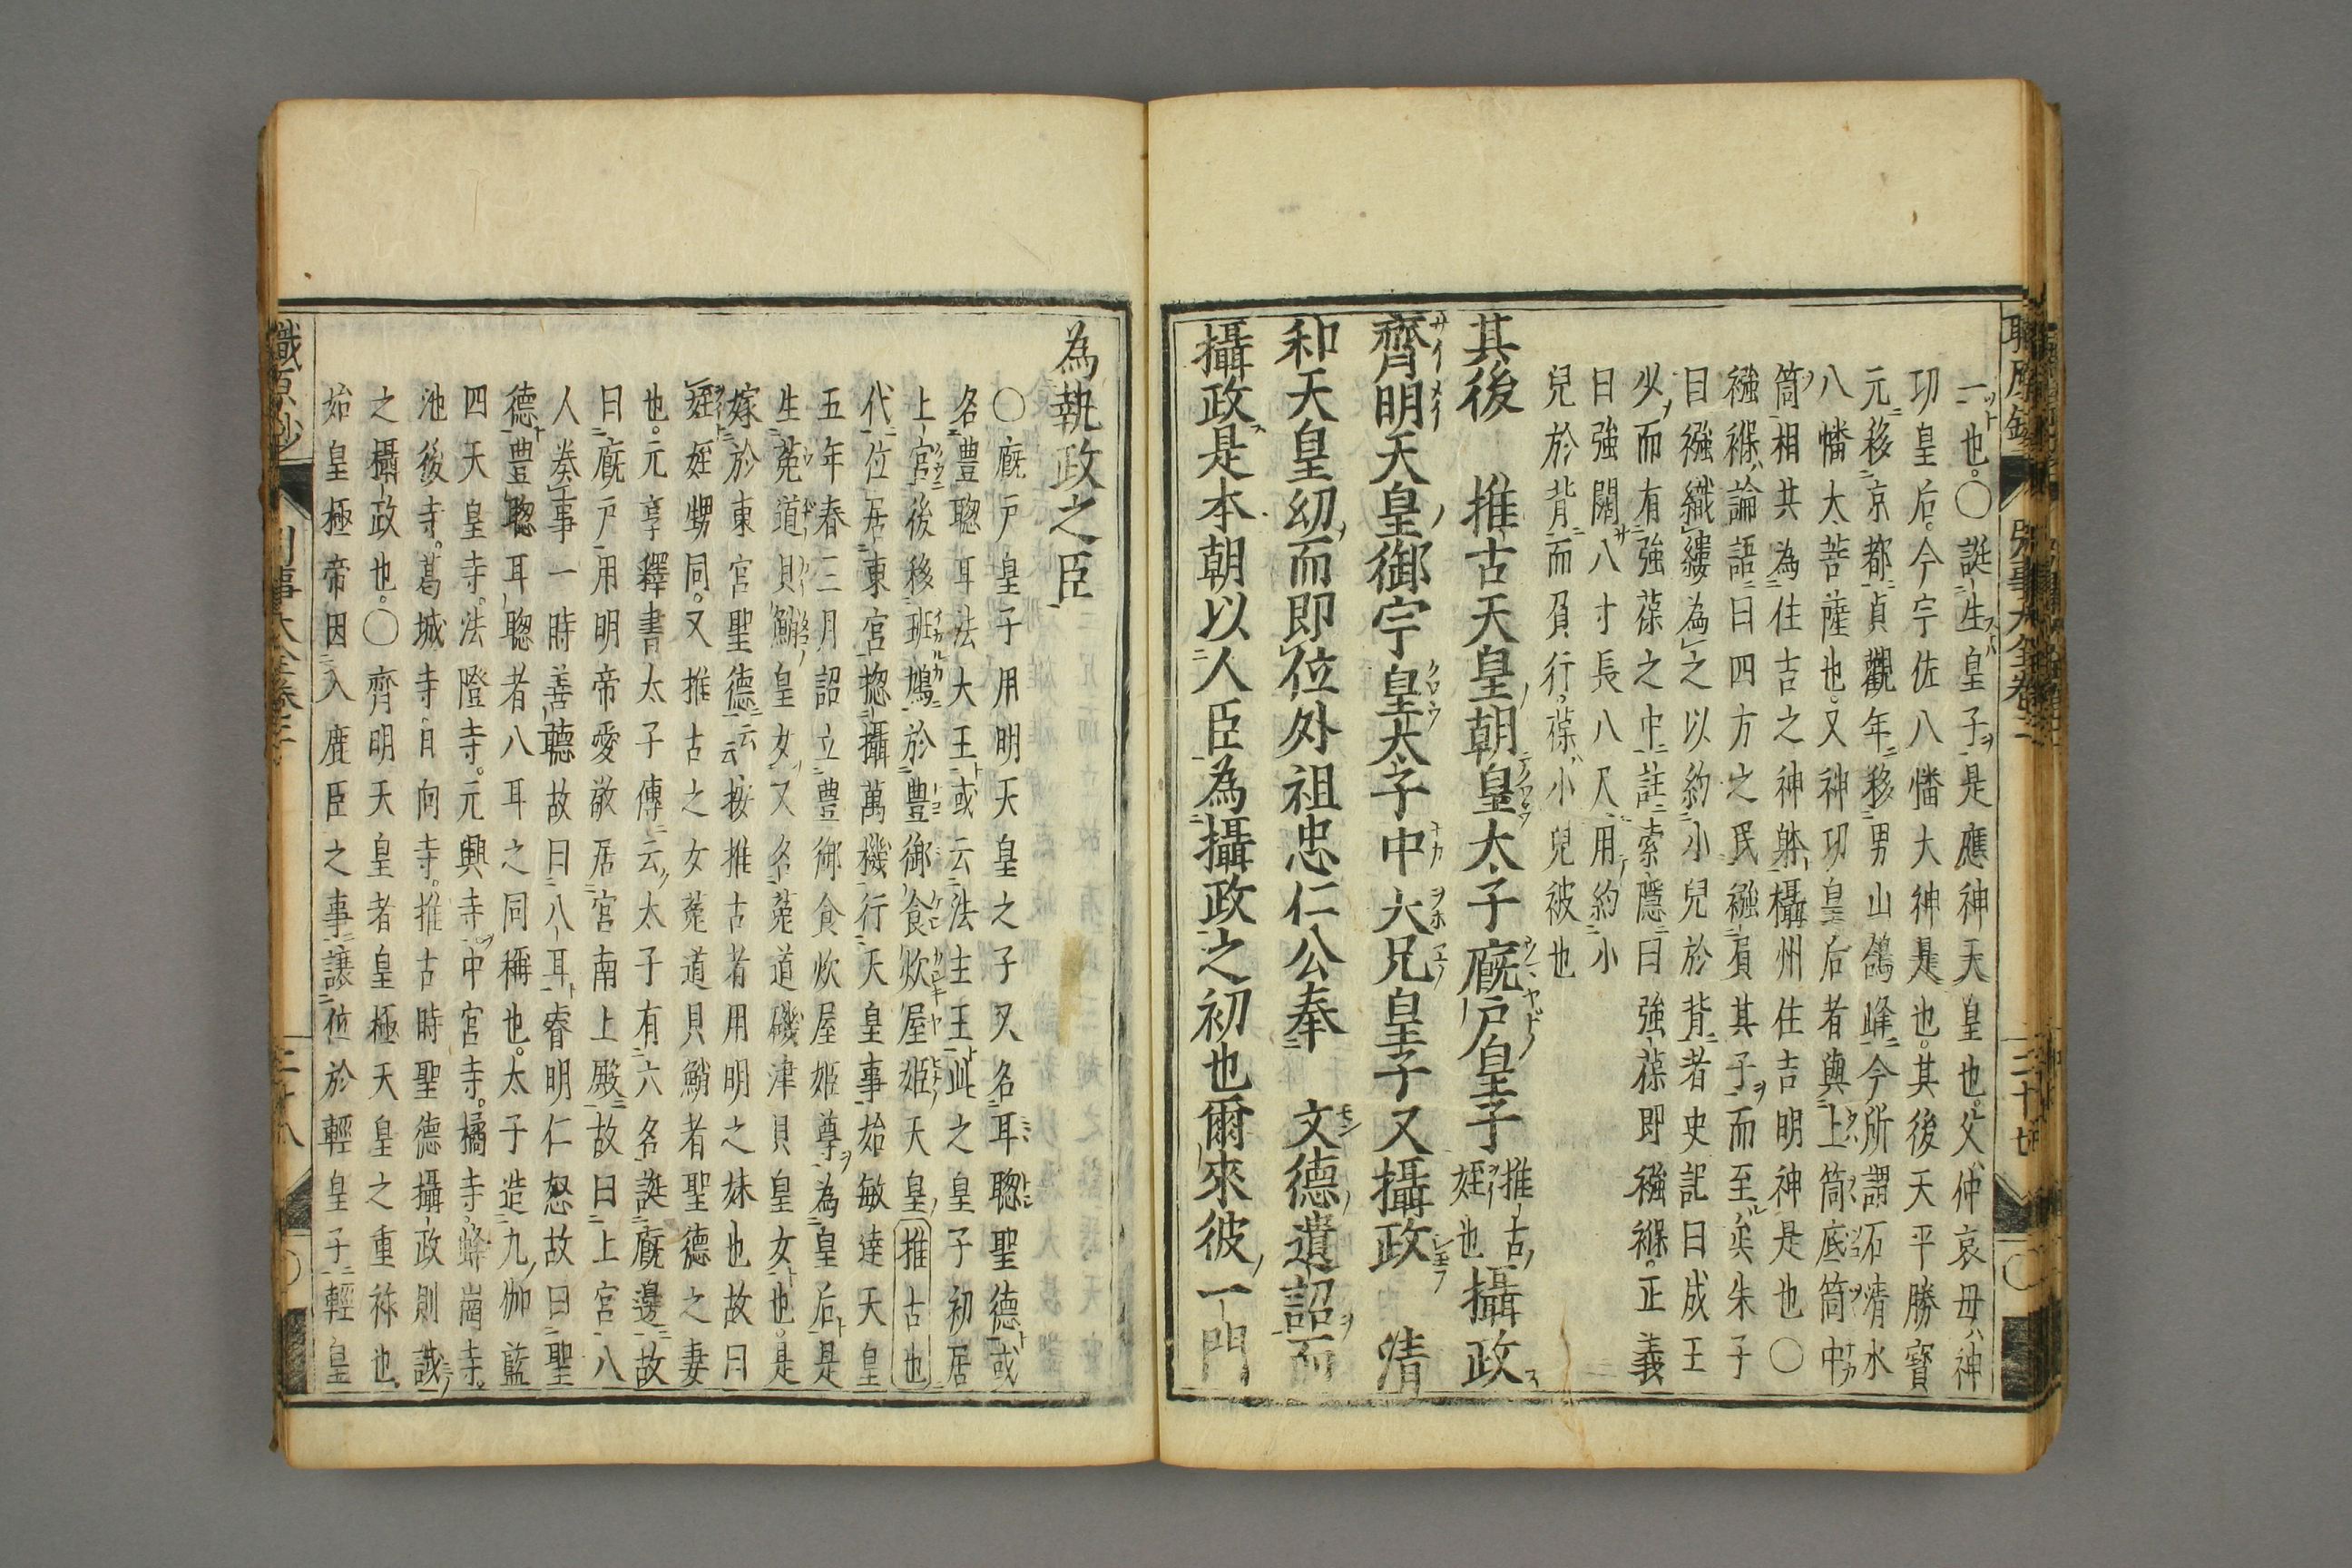 一也。〇誕生皇子是應神天皇也。父仲哀母神
功皇后。今宇佐八幡大神是也。其後天平勝寶
元移京都貞觀年移男山鴿峰今所謂石清水
八幡大菩薩也。又神功皇后者與上筒底筒中
筒相共為住吉之神躰攝州住吉明神是也〇
襁褓論語曰四方之民襁負其子而至矣朱子
曰襁織縷為之以約小兒於背者史記曰成王
少而有強葆之中註索隱曰強葆即襁褓。正義
曰強闊八寸長八尺用約小
兒於背而負行。葆小兒被也
其後　推古天皇朝皇太子廐戸皇子推古姪也攝政
齊明天皇御宇皇太子中大兄皇子又攝政　清
和天皇幼而即位外祖忠仁公奉　文德遺詔而
攝政是本朝以人臣為攝政之初也爾來彼一門
職原鈔 別事大全卷二 二十七
為執政之臣
〇廐戸皇子用明天皇之子又名耳聰聖德或
名豊聰耳法大王或云法主王此之皇子初居
上宮後移班鳩於豊御食炊屋姫天皇推古也
代位居東宮揔攝萬機行天皇事始敏達天皇
五年春三月詔立豊御食炊屋姫尊為皇后是
生菟道貝鮹皇女又名菟道磯津貝皇女也。是
嫁於東宮聖德云云按推古者用明之妹也故曰
姪姪甥同。又推古之女菟道貝鮹者聖德之妻
也。元亨釋書太子傳云太子有六名誕廐邊故
曰廐戸用明帝愛敬居宮南上殿故曰上宮八
人奏事一時善聽故曰八耳睿明仁恕故曰聖
德豊聰耳聰者八耳之同稱也。太子造九伽藍
四天皇寺。法隆寺。元興寺中宮寺。橘寺。蜂崗寺。
池後寺。葛城寺。日向寺。推古時聖德攝政則誡
之攝政也。〇齊明天皇者皇極天皇之重祚也
始皇極帝因入鹿臣之事讓位於輕皇子輕皇
職原鈔 別事大全卷二 二十八